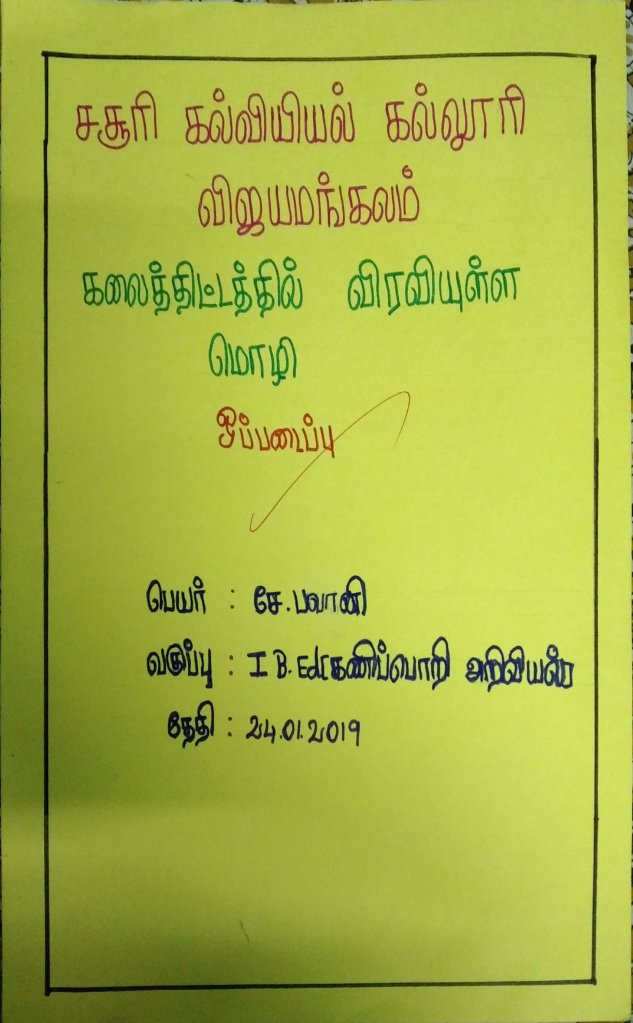 சசூரி கல்வியியல் கல்லூரி
விஜயமங்கலம்
கலைத்திட்டத்தில் விரவியுள்ள
மொழி
ஒப்படைப்பு
பெயர் : சே.பவானி
வகுப்பு : I B.Ed(கணிப்பொறி அறிவியல்)
தேதி : 24.01.2019